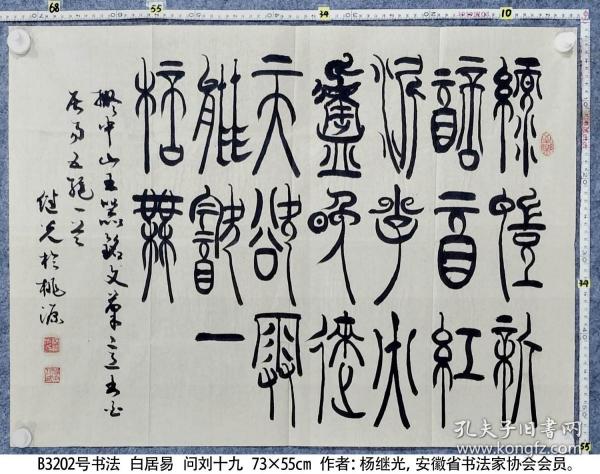 68
55
10
綠螘新
醅酒紅
泥小火
爐晚來
天欲雪
能飲一
杯無
擬中山王器銘文筆意書白
居易五絕一首
继光於桃源
55
孔夫子旧书网
kongfz.com
B3202号书法 白居易 问刘十九 73×55cm 作者：杨继光，安徽省书法家协会会员。